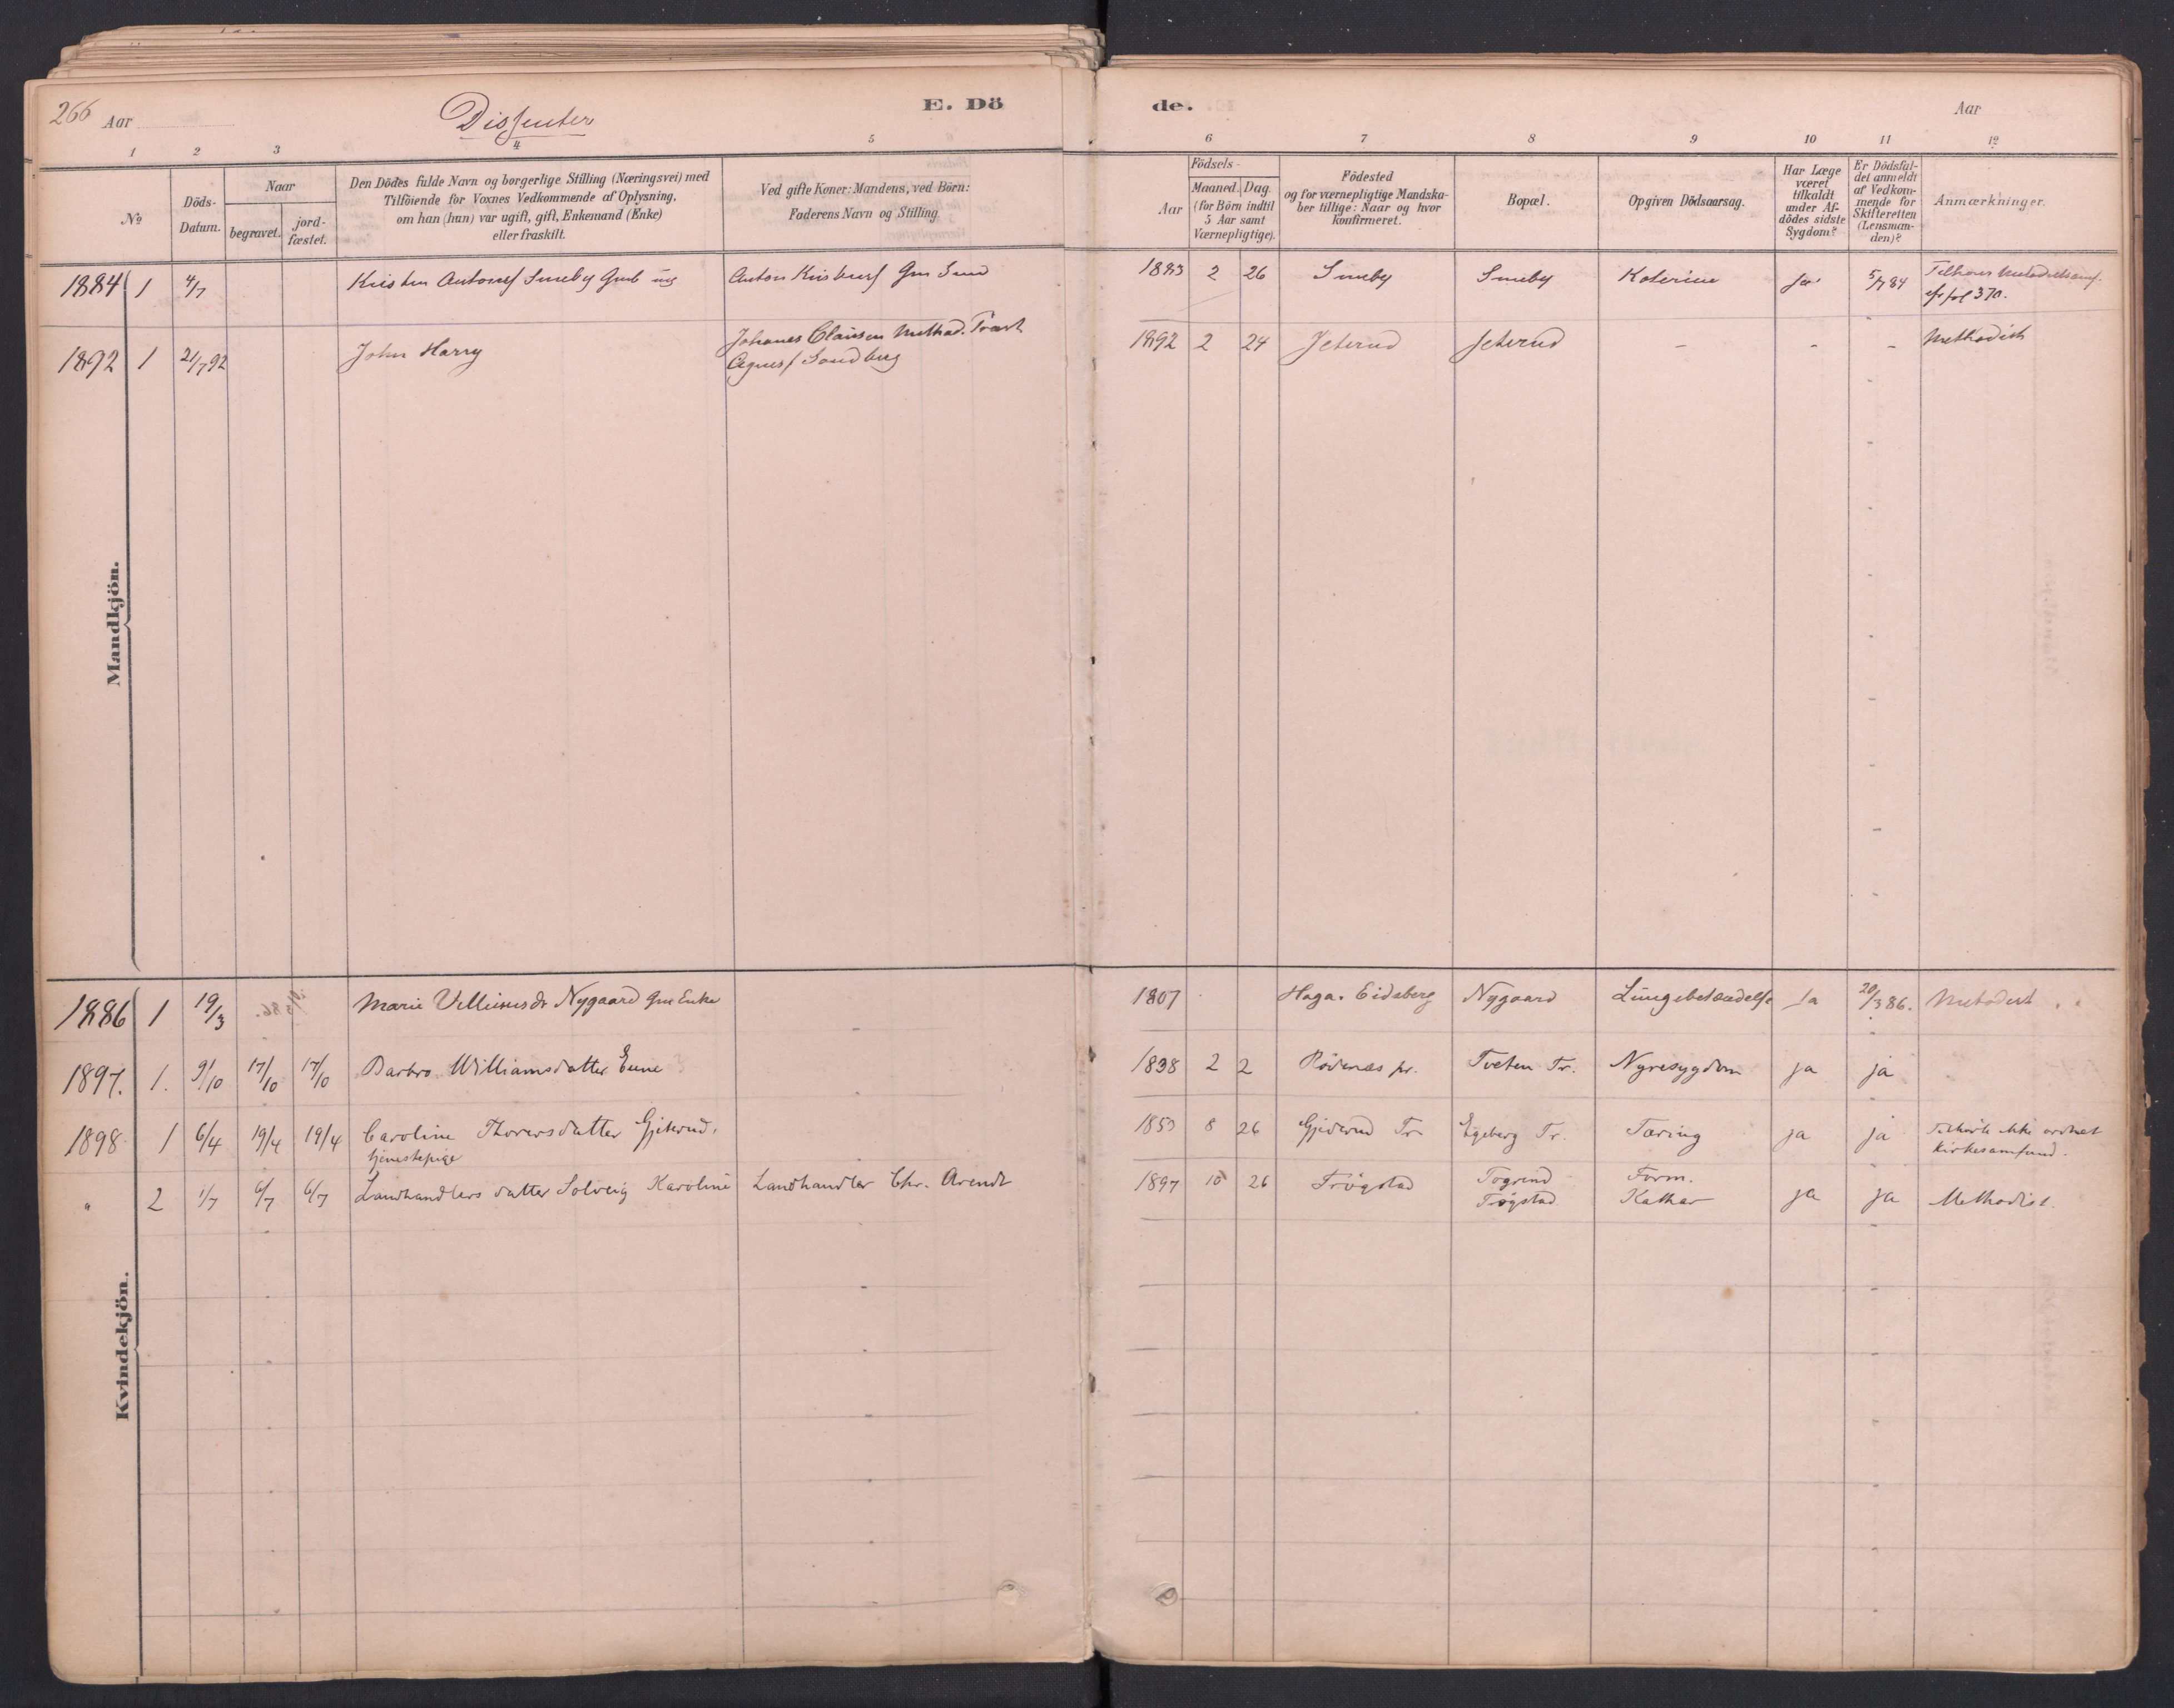 266 Aar
Dissenter
E. Dö
de.
Aar
1 2 3 4 5 6 7 8 9 10 11 12
No
Döds-
Datum.
Naar
begravet.
jord-
fæstet.
Den Dödes fulde Navn og borgerlige Stilling (Næringsvei) med
Tilföiende for Voxnes Vedkommende af Oplysning,
om han (hun) var ugift, gift, Enkemand (Enke)
eller fraskilt.
Ved gifte Koner: Mandens, ved Börn:
Faderens Navn og Stilling.
Aar
Födsels-
Maaned. Dag.
(for Börn indtil
5 Aar samt
Værnepligtige).
Födested
og for værnepligtige Mandska-
ber tillige: Naar og hvor
konfirmeret.
Bopæl.
Opgiven Dödsaarsag.
Har Læge
været
tilkaldt
under Af-
dödes sidste
Sygdom?
Er Dödsfal-
det anmeldt
af Vedkom-
mende for
Skifteretten
(Lensman-
den)?
Anmærkninger.
Mandkjön.
1884 1 4/7 Smeby 1883 2 26 Smeby Smeby ja 5/7 84
fol 370.
1892 1 21/7 92 John Harry Johanes Clausen 1892 2 24 Jeterud Jeterud - - - Methodist
Sandberg
Kvindekjön.
1886 1 19/3 Marie Nygaard Gm Enke 1807 Haga. Eidsberg Nygaard Lungebetændelse Ja 20/3 86. Metodist
1897. 1. 9/10 17/10 17/10 Barbro Williamsdatter 1838 2 2 Rödenæs pr. Tveten Tr. Nyresygdom ja ja
1898 1 6/4 19/4 19/4 Caroline Thorersdatter Gjiterud. 1853 8 26 Gjiderud Tr. Egeberg Tr. Tæring ja ja ikke ordnet
tjenestepige
kirkesamfund.
" 2 1/7 6/7 6/7 Landhandlers datter Solveig Karoline Landhandler Chr. Arendt 1897 10 26 Trögstad Togrind Form. ja ja Methodist.
Trögstad Kathar